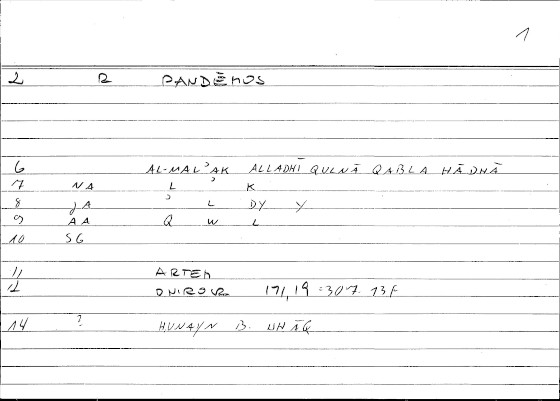 1
2 R PANDĒMOS
6 AL-MALʾAK ALLADHĪ QULNĀ QABLA HĀDHĀ
7 NA L ʾ K
8 JA ʾ L DY Y
9 AA Q W L
10 SG
11 ARTEM
12 ONIROCR 171,19 = 307. 13F
14 ? HUNAYN B.